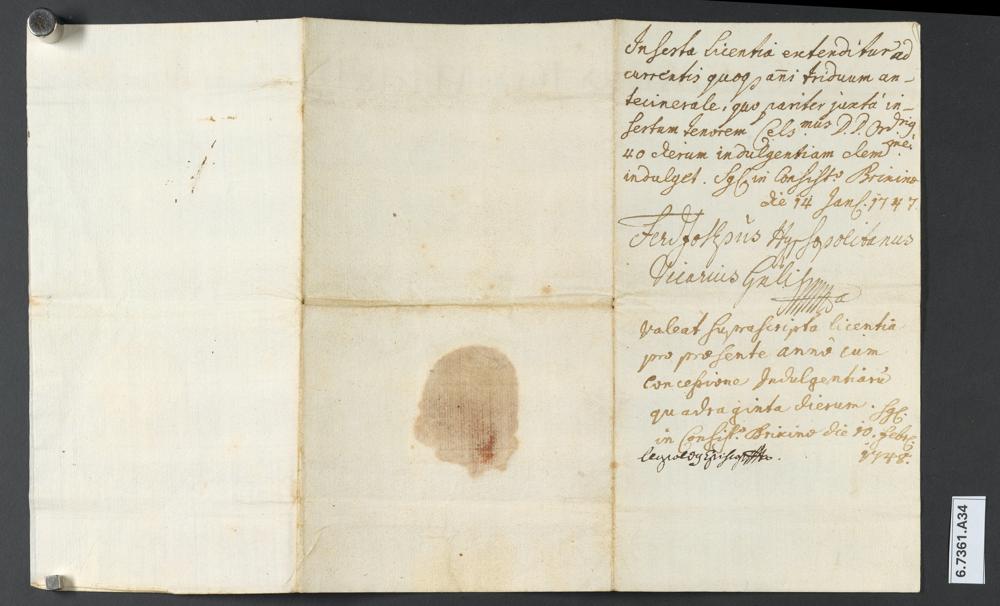 Inserta licentia extenditur ad
currentis quoq̃ añi triduum an-
tecinerale, quo pariter juxta in-
sertum tenorem Cels.mus D. D. Ord.rig
40 dierum indulgentiam clem
indulget. Sig. in Consist.o Brixinæ
die 14 Jan. 1747
Hyrsopolitanus
Vicarius Gnlis
Valeat suprascripta licentia
pro præsente anno cum
Concessione Indulgentiarũ
quadraginta dierum. Sig.
in Consist.o Brixinæ die 10. Febr.
1748.
6.7361.A34